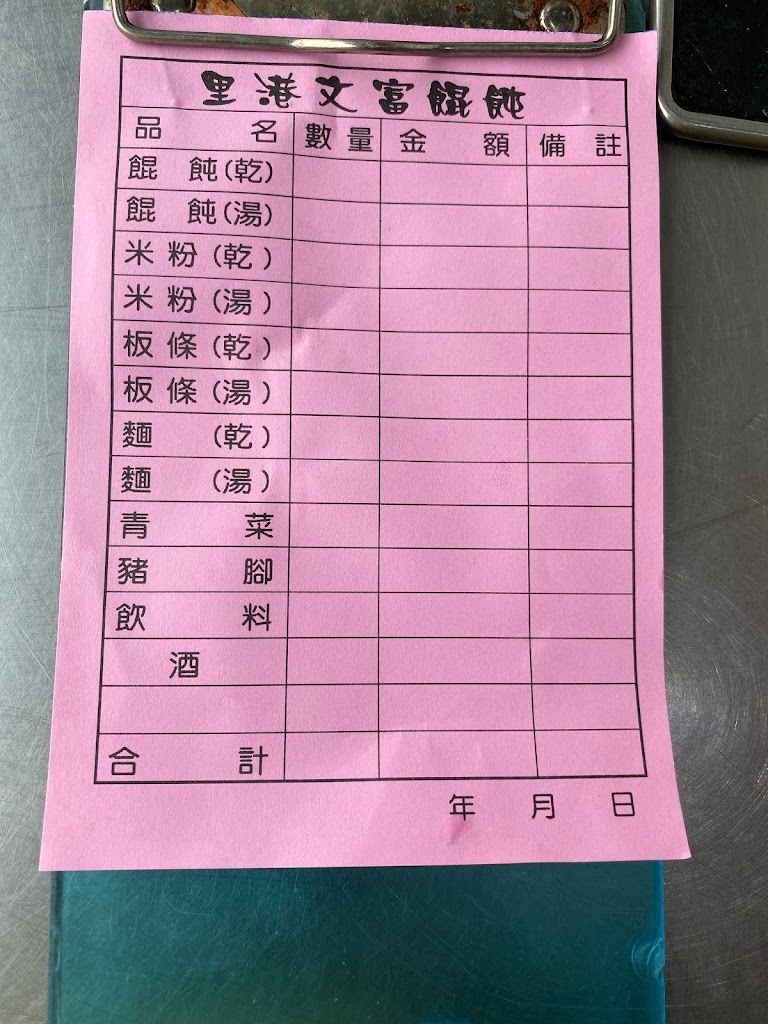 里港文富餛飩
品名 數量 金額 備註
餛飩(乾)
餛飩(湯)
米粉(乾)
米粉(湯)
板條(乾)
板條(湯)
麵(乾)
麵(湯)
青菜
豬腳
飲料
酒
合計
年 月 日